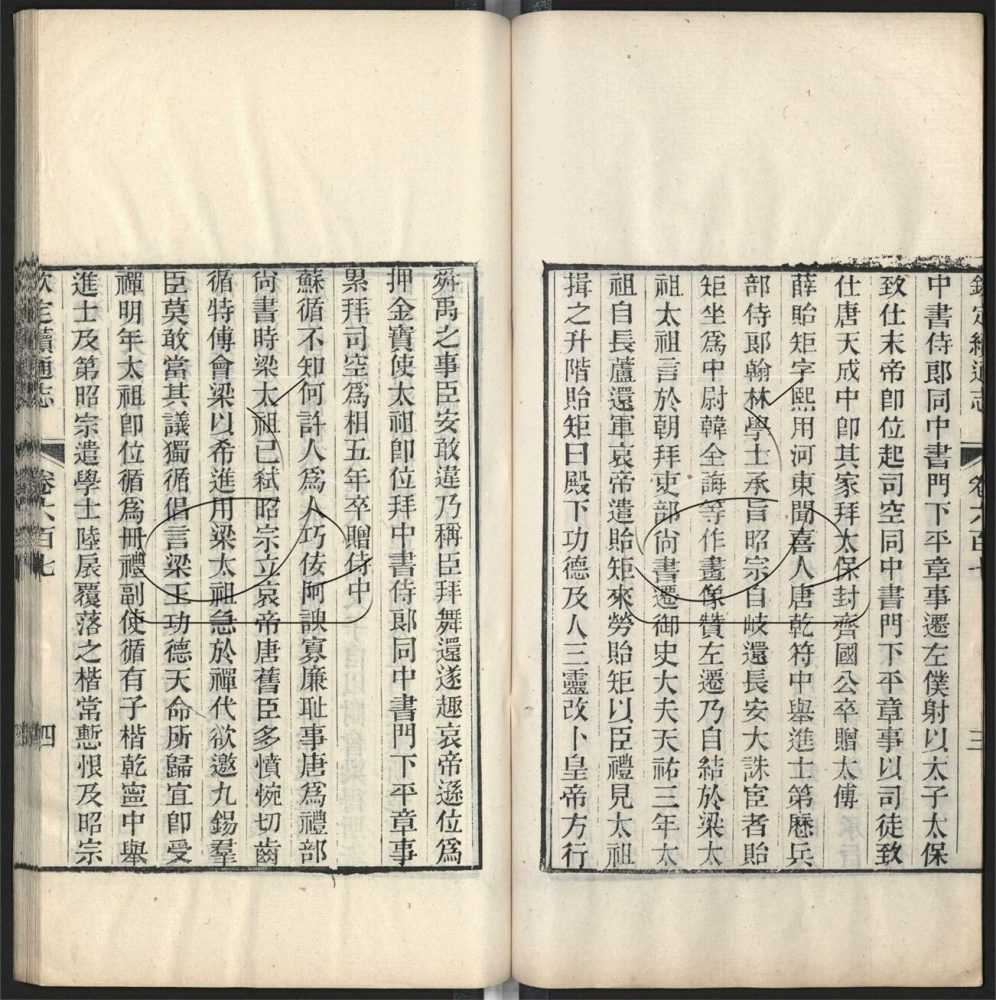 欽定續通志 卷六百七 三
中書侍郎同中書門下平章事遷左僕射以太子太保
致仕末帝卽位起司空同中書門下平章事以司徒致
仕唐天成中卽其家拜太保封齊國公卒贈太傅
薛貽矩字熙用河東聞喜人唐乾符中舉進士第歷兵
部侍郎翰林學士承旨昭宗自岐還長安大誅宦者貽
矩坐爲中尉韓全誨等作畫像贊左遷乃自結於梁太
祖太祖言於朝拜吏部尙書遷御史大夫天祐三年太
祖自長蘆還軍哀帝遣貽矩來勞貽矩以臣禮見太祖
揖之升階貽矩曰殿下功德及人三靈改卜皇帝方行
舜禹之事臣安敢違乃稱臣拜舞還遂趣哀帝遜位爲
押金寶使太祖卽位拜中書侍郎同中書門下平章事
累拜司空爲相五年卒贈侍中
蘇循不知何許人爲人巧佞阿諛寡廉耻事唐爲禮部
尙書時梁太祖已弒昭宗立哀帝唐舊臣多憤惋切齒
循特傅會梁以希進用梁太祖急於禪代欲邀九錫羣
臣莫敢當其議獨循倡言梁王功德天命所歸宜卽受
禪明年太祖卽位循爲冊禮副使循有子楷乾寧中舉
進士及第昭宗遣學士陸扆覆落之楷常慙恨及昭宗
欽定續通志 卷六百七 四